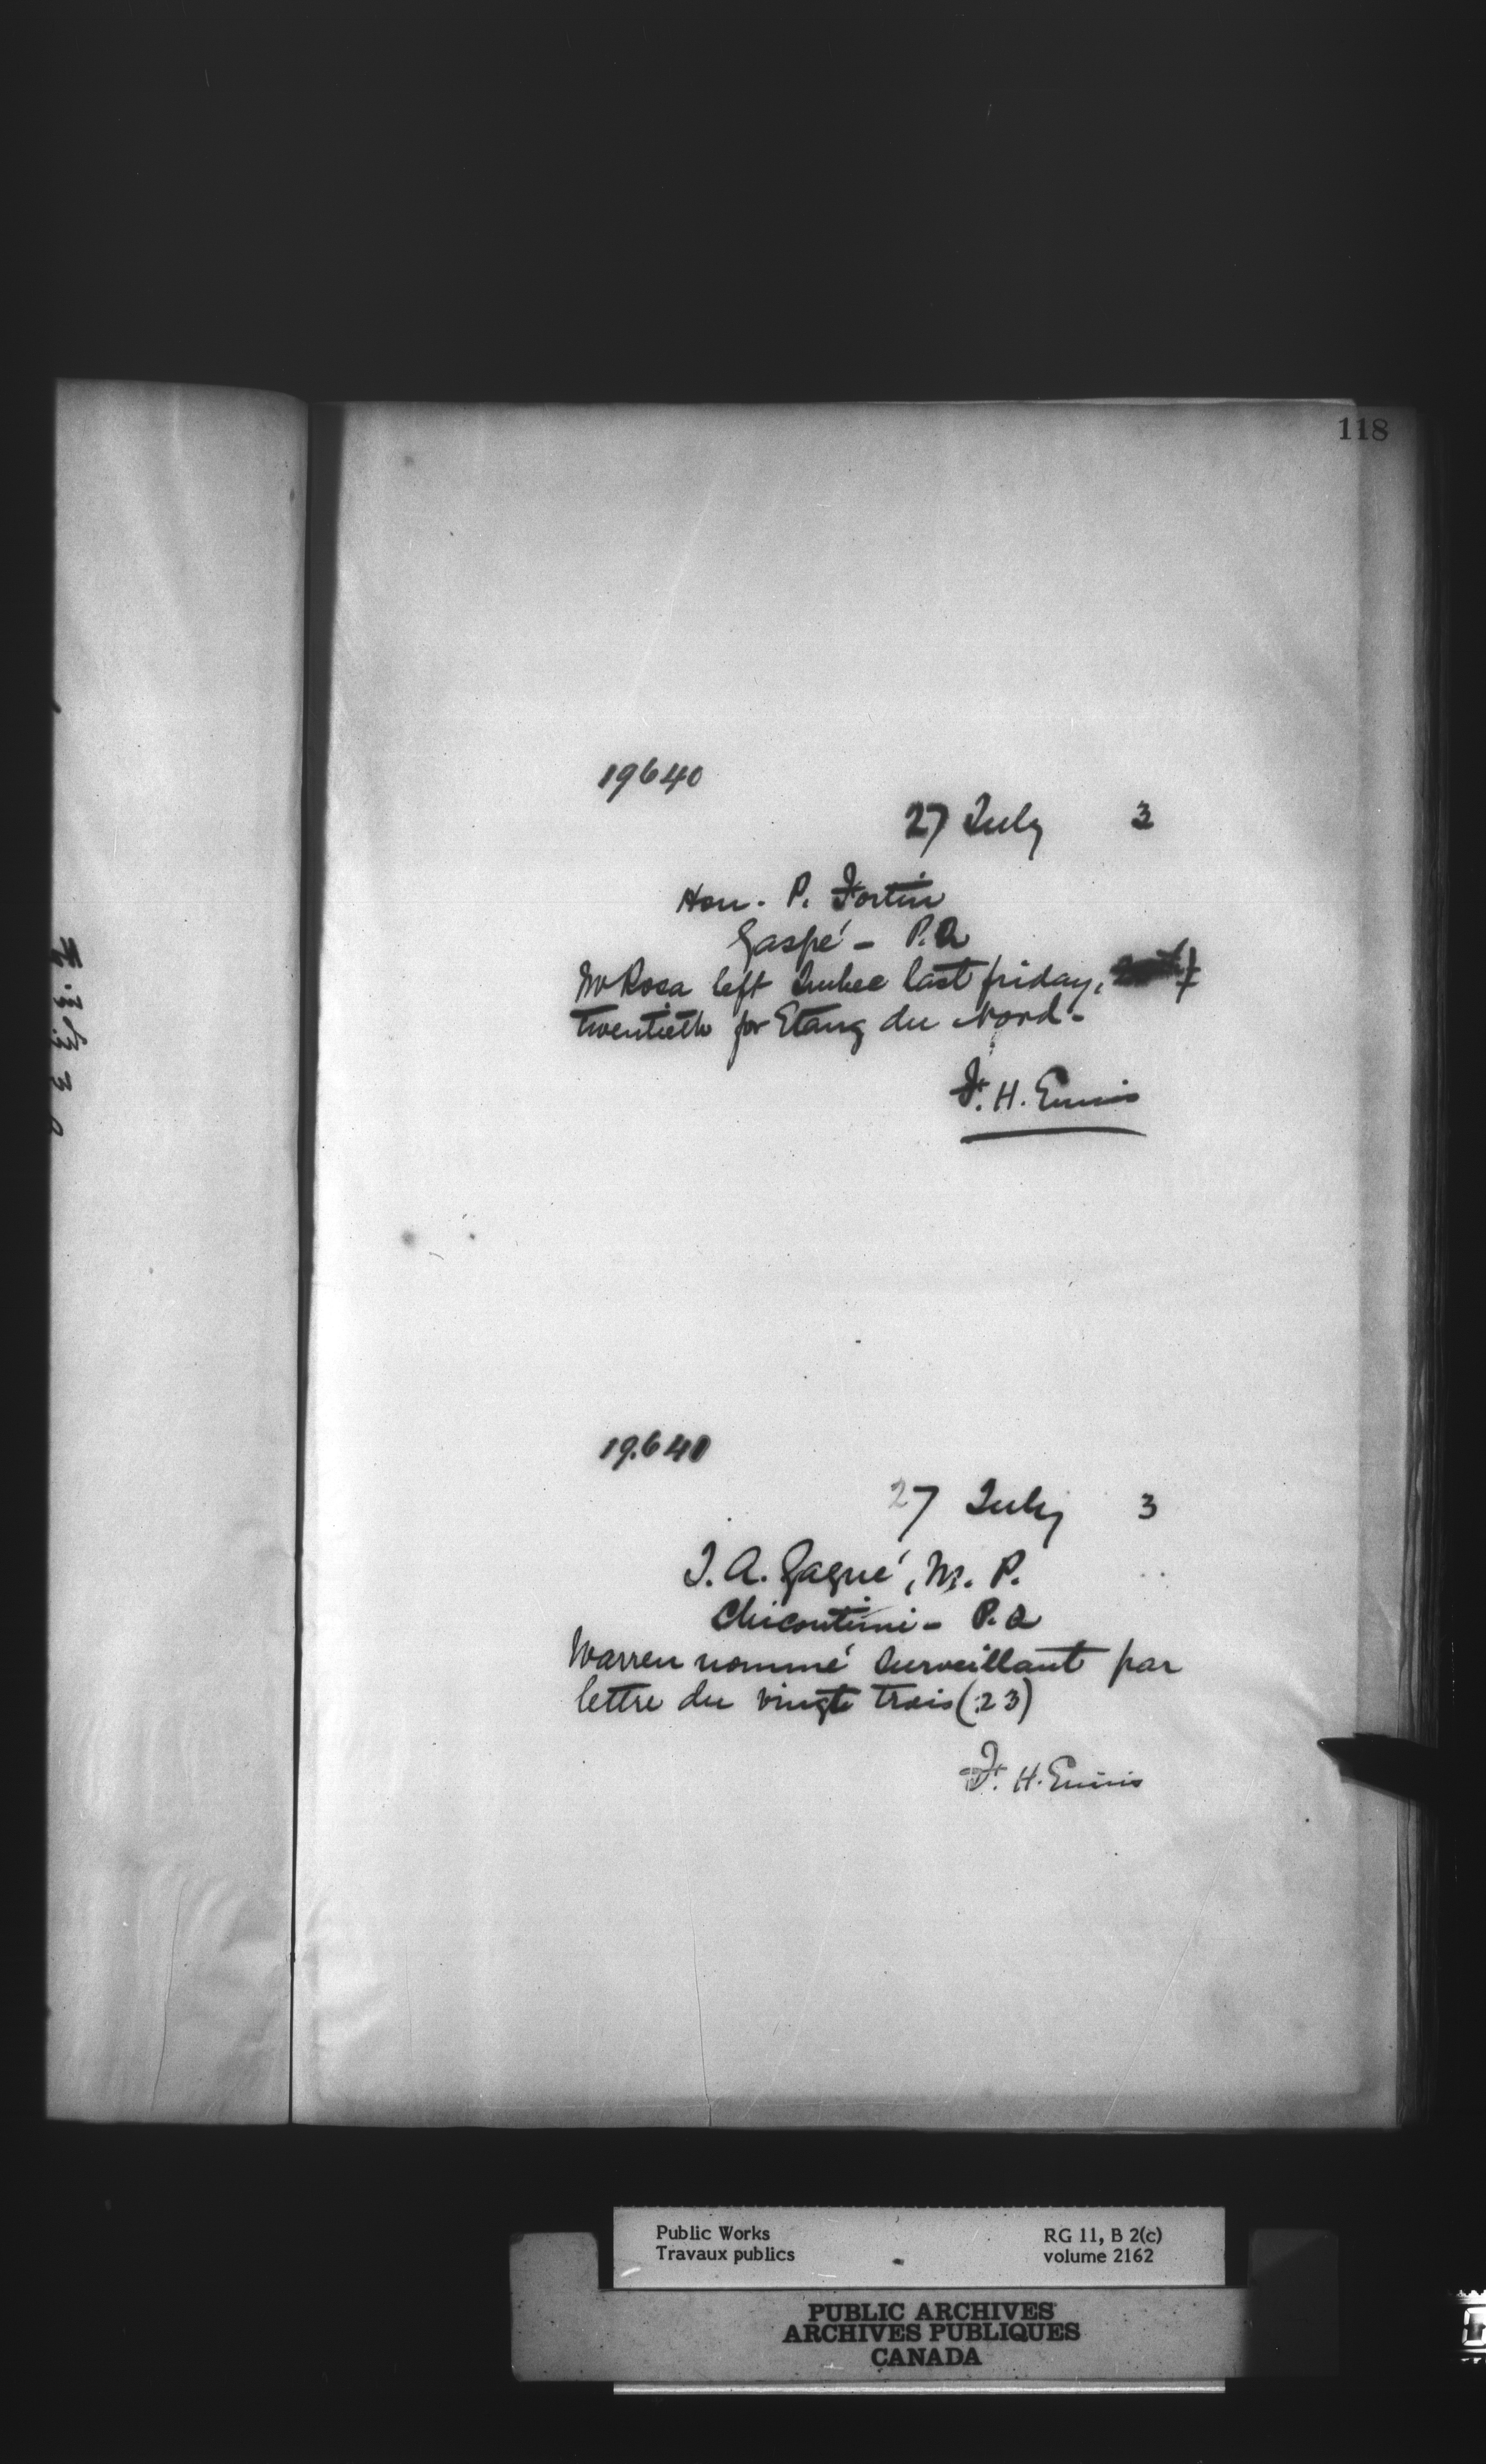 118
19640
27 July 3
Hon. P. Fortin
Gaspé - P.Q
Mr Rosa left Quebec last friday,
twentieth for Etang du Nord -
F. H. Ennis
19.640
27 July 3
J. A. Gagné, M. P.
Chicoutimi - P. Q
Warren nommé Surveillant par
lettre du vingt trois (23)
F. H. Ennis
Public Works
Travaux publics
RG 11, B 2(c)
volume 2162
PUBLIC ARCHIVES
ARCHIVES PUBLIQUES
CANADA